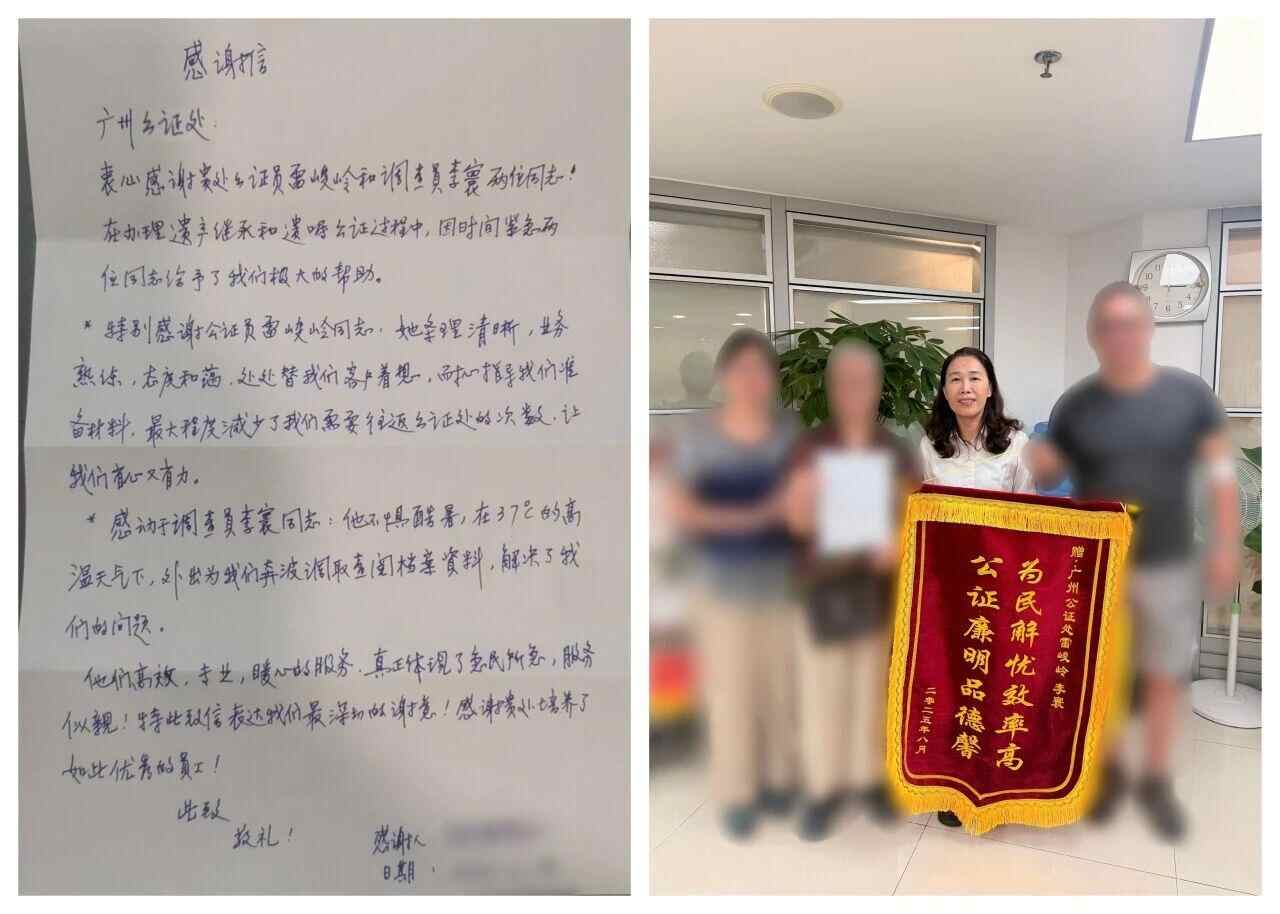 感谢信
广州公证处：
衷心感谢贵处公证员雷峻岭和调查员李寰两位同志！
在办理遗产继承和遗嘱公证过程中，因时间紧急两
位同志给予了我们极大的帮助。
* 特别感谢公证员雷峻岭同志：她条理清晰，业务
熟练，态度和蔼，处处替我们客户着想，耐心指导我们准
备材料，最大程度减少了我们需要往返公证处的次数，让
我们省心又省力。
* 感动于调查员李寰同志：他不惧酷暑，在37℃的高
温天气下，外出为我们奔波调取查阅档案资料，解决了我
们的问题。
他们高效，专业，暖心的服务，真正体现了急民所急，服务
似親！特此致信表达我们最深切的谢意！感谢贵处培养了
如此优秀的员工！
此致
敬礼！
感谢人
日期：
赠：广州公证处雷峻岭 李寰
为民解忧效率高
公证廉明品德馨
二零二五年八月